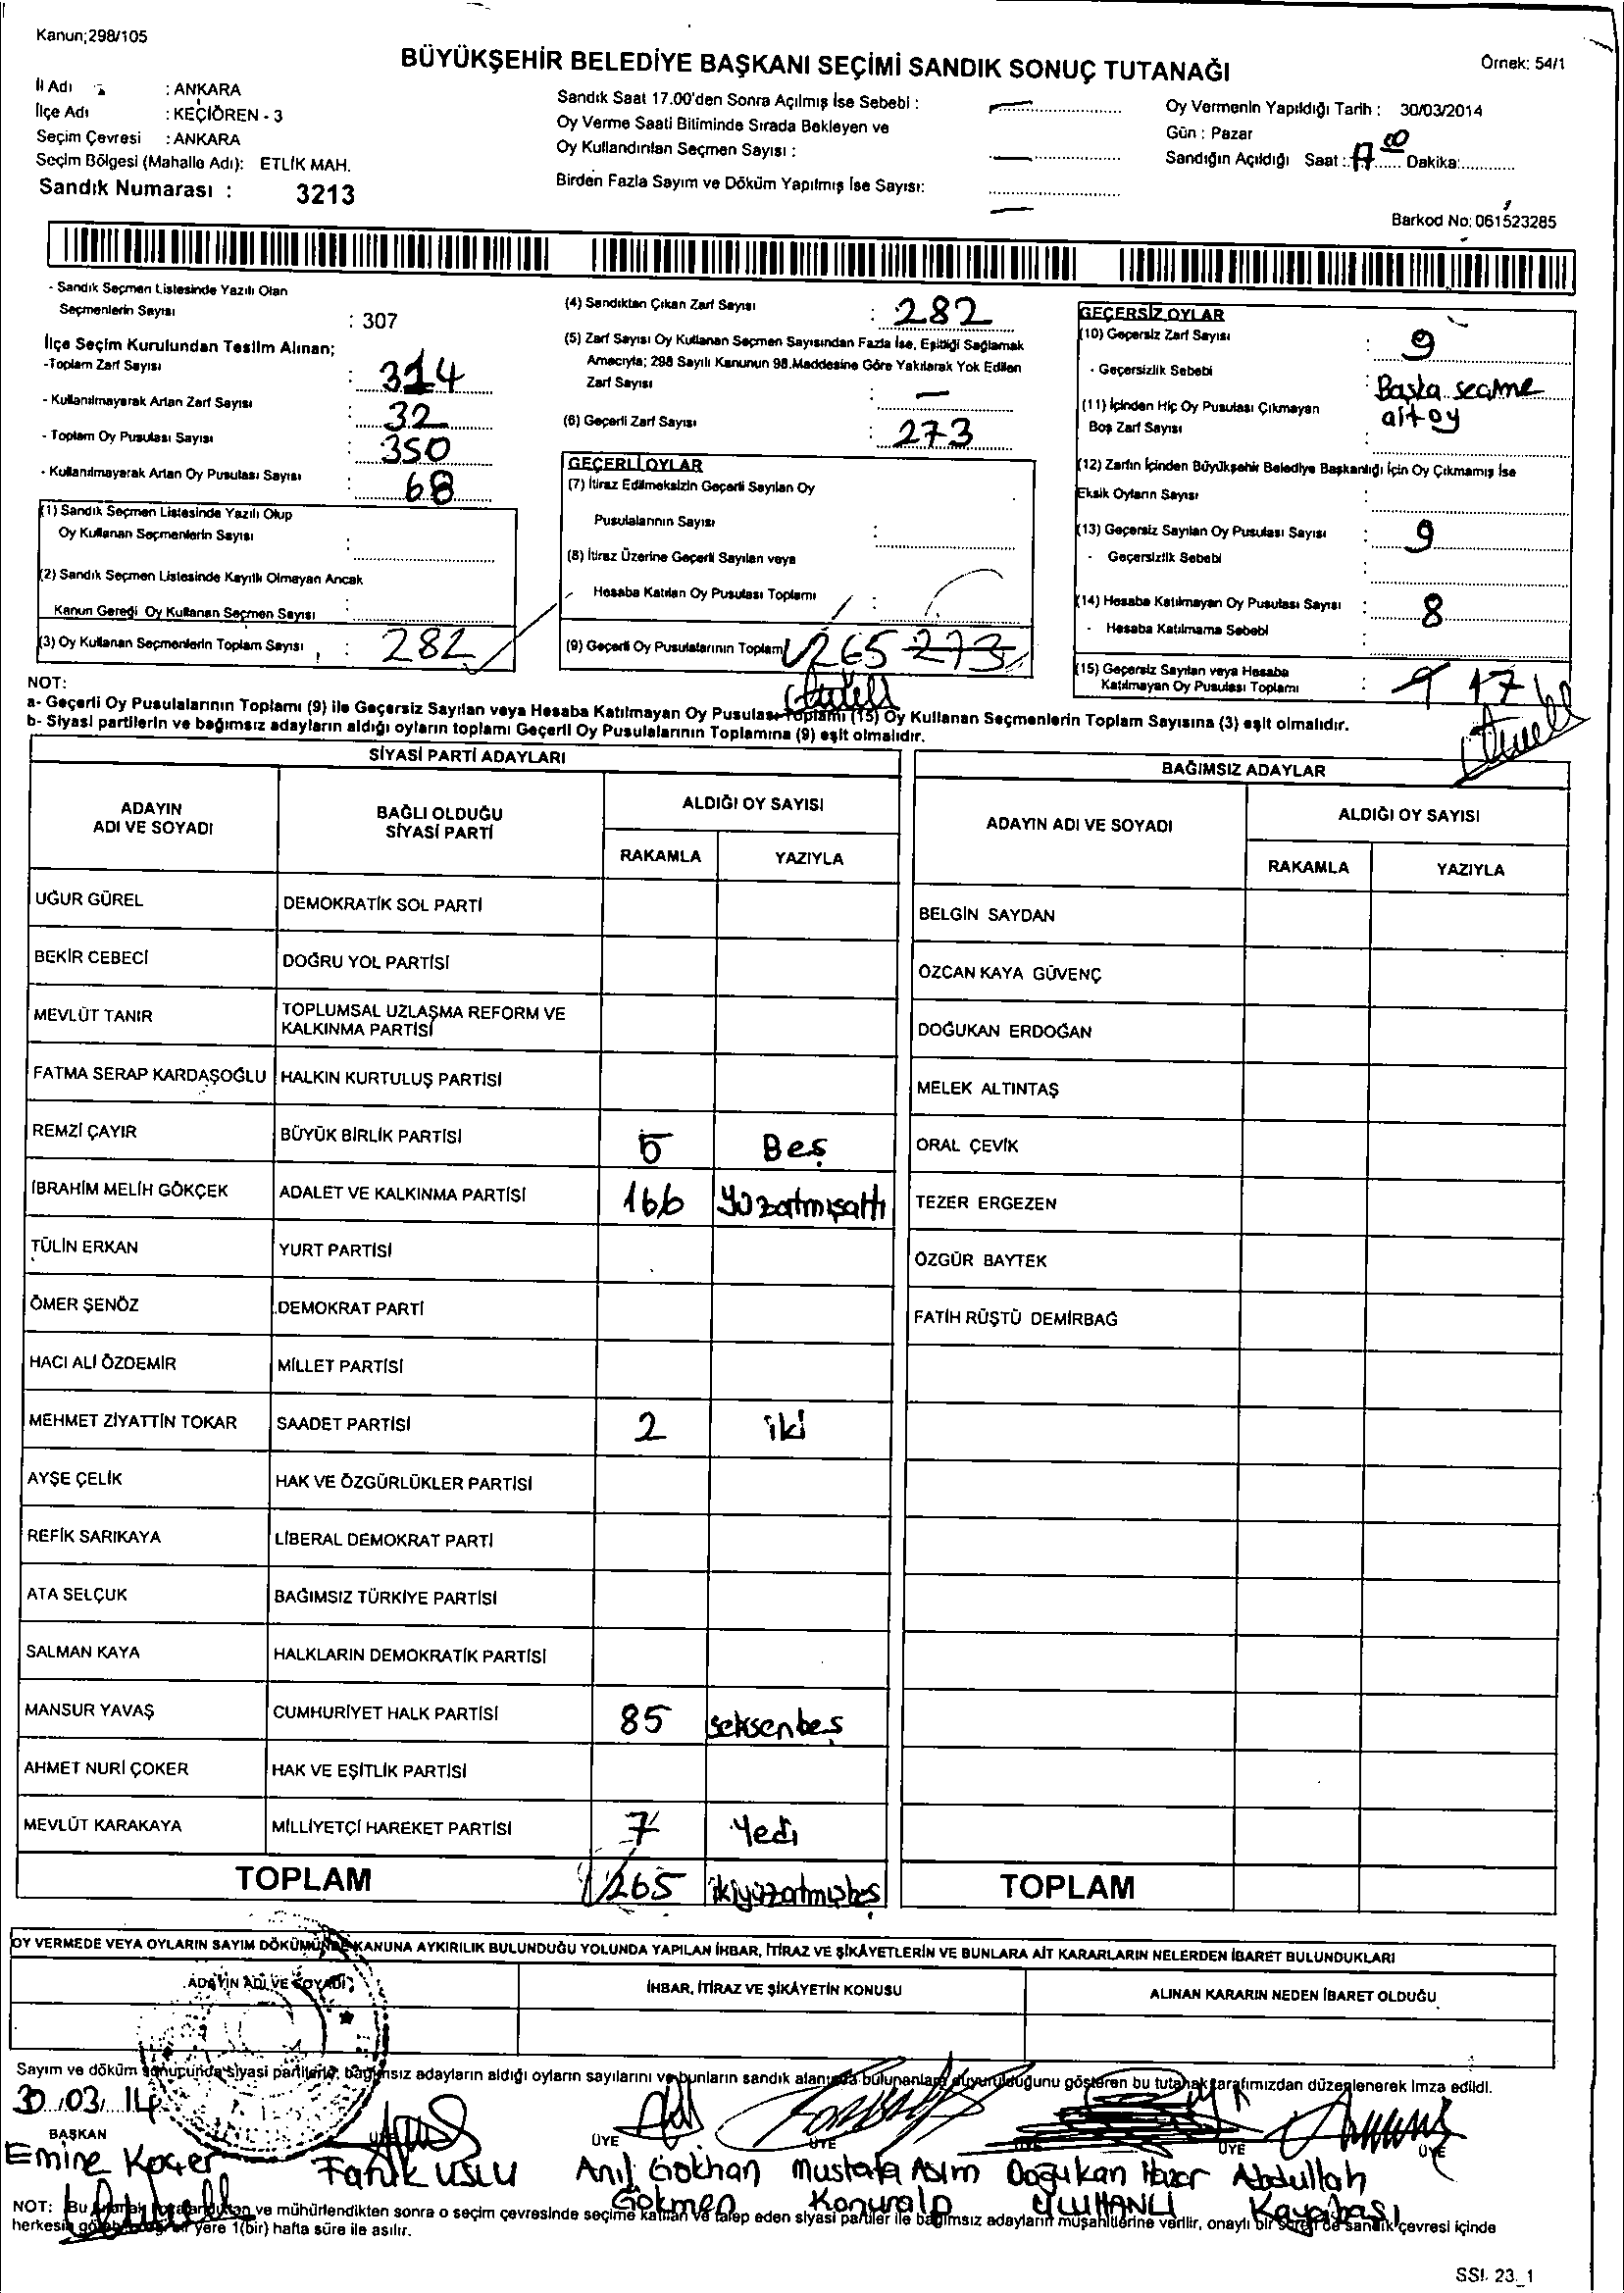 Kanun;298/105
BÜYÜKŞEHİR BELEDİYE BAŞKANI SEÇİMİ SANDIK SONUÇ TUTANAĞI
Örnek: 54/1
İl Adı : ANKARA
İlçe Adı : KEÇİÖREN - 3
Seçim Çevresi : ANKARA
Seçim Bölgesi (Mahalle Adı): ETLİK MAH.
Sandık Numarası : 3213
Sandık Saat 17.00'den Sonra Açılmış İse Sebebi : —
Oy Verme Saati Bitiminde Sırada Bekleyen ve
Oy Kullandırılan Seçmen Sayısı : —
Birden Fazla Sayım ve Döküm Yapılmış İse Sayısı: —
Oy Vermenin Yapıldığı Tarih : 30/03/2014
Gün : Pazar
Sandığın Açıldığı Saat : 17 00 Dakika:
Barkod No: 061523285
- Sandık Seçmen Listesinde Yazılı Olan
Seçmenlerin Sayısı : 307
İlçe Seçim Kurulundan Teslim Alınan;
-Toplam Zarf Sayısı : 314
- Kullanılmayarak Artan Zarf Sayısı : 32
- Toplam Oy Pusulası Sayısı : 350
- Kullanılmayarak Artan Oy Pusulası Sayısı : 68
(1) Sandık Seçmen Listesinde Yazılı Olup
Oy Kullanan Seçmenlerin Sayısı :
(2) Sandık Seçmen Listesinde Kayıtlı Olmayan Ancak
Kanun Gereği Oy Kullanan Seçmen Sayısı :
(3) Oy Kullanan Seçmenlerin Toplam Sayısı : 282
(4) Sandıktan Çıkan Zarf Sayısı : 282
(5) Zarf Sayısı Oy Kullanan Seçmen Sayısından Fazla İse, Eşitliği Sağlamak
Amacıyla; 298 Sayılı Kanunun 98.Maddesine Göre Yakılarak Yok Edilen
Zarf Sayısı : —
(6) Geçerli Zarf Sayısı : 273
GEÇERLİ OYLAR
(7) İtiraz Edilmeksizin Geçerli Sayılan Oy
Pusulalarının Sayısı :
(8) İtiraz Üzerine Geçerli Sayılan veya
Hesaba Katılan Oy Pusulası Toplamı :
(9) Geçerli Oy Pusulalarının Toplamı 265 273
GEÇERSİZ OYLAR
(10) Geçersiz Zarf Sayısı : 9
- Geçersizlik Sebebi : Başka seçime
(11) İçinden Hiç Oy Pusulası Çıkmayan ait oy
Boş Zarf Sayısı :
(12) Zarfın İçinden Büyükşehir Belediye Başkanlığı İçin Oy Çıkmamış İse
Eksik Oyların Sayısı :
(13) Geçersiz Sayılan Oy Pusulası Sayısı : 9
- Geçersizlik Sebebi :
(14) Hesaba Katılmayan Oy Pusulası Sayısı : 8
- Hesaba Katılmama Sebebi :
(15) Geçersiz Sayılan veya Hesaba
Katılmayan Oy Pusulası Toplamı : 9 17
NOT:
a- Geçerli Oy Pusulalarının Toplamı (9) ile Geçersiz Sayılan veya Hesaba Katılmayan Oy Pusulası Toplamı (15) Oy Kullanan Seçmenlerin Toplam Sayısına (3) eşit olmalıdır.
b- Siyasi partilerin ve bağımsız adayların aldığı oyların toplamı Geçerli Oy Pusulalarının Toplamına (9) eşit olmalıdır.
SİYASİ PARTİ ADAYLARI
ADAYIN ADI VE SOYADI
BAĞLI OLDUĞU SİYASİ PARTİ
ALDIĞI OY SAYISI
RAKAMLA YAZIYLA
UĞUR GÜREL DEMOKRATİK SOL PARTİ
BEKİR CEBECİ DOĞRU YOL PARTİSİ
MEVLÜT TANIR TOPLUMSAL UZLAŞMA REFORM VE
KALKINMA PARTİSİ
FATMA SERAP KARDAŞOĞLU HALKIN KURTULUŞ PARTİSİ
REMZİ ÇAYIR BÜYÜK BİRLİK PARTİSİ 5 Beş
İBRAHİM MELİH GÖKÇEK ADALET VE KALKINMA PARTİSİ 166 Yüzatmışaltı
TÜLİN ERKAN YURT PARTİSİ
ÖMER ŞENÖZ DEMOKRAT PARTİ
HACI ALİ ÖZDEMİR MİLLET PARTİSİ
MEHMET ZİYATTİN TOKAR SAADET PARTİSİ 2 iki
AYŞE ÇELİK HAK VE ÖZGÜRLÜKLER PARTİSİ
REFİK SARIKAYA LİBERAL DEMOKRAT PARTİ
ATA SELÇUK BAĞIMSIZ TÜRKİYE PARTİSİ
SALMAN KAYA HALKLARIN DEMOKRATİK PARTİSİ
MANSUR YAVAŞ CUMHURİYET HALK PARTİSİ 85 seksenbeş
AHMET NURİ ÇOKER HAK VE EŞİTLİK PARTİSİ
MEVLÜT KARAKAYA MİLLİYETÇİ HAREKET PARTİSİ 7 Yedi
TOPLAM 265 ikiyüzatmışbeş
BAĞIMSIZ ADAYLAR
ADAYIN ADI VE SOYADI
ALDIĞI OY SAYISI
RAKAMLA YAZIYLA
BELGİN SAYDAN
ÖZCAN KAYA GÜVENÇ
DOĞUKAN ERDOĞAN
MELEK ALTINTAŞ
ORAL ÇEVİK
TEZER ERGEZEN
ÖZGÜR BAYTEK
FATİH RÜŞTÜ DEMİRBAĞ
TOPLAM
OY VERMEDE VEYA OYLARIN SAYIM DÖKÜMÜNDE KANUNA AYKIRILIK BULUNDUĞU YOLUNDA YAPILAN İHBAR, İTİRAZ VE ŞİKÂYETLERİN VE BUNLARA AİT KARARLARIN NELERDEN İBARET BULUNDUKLARI
ADAYIN ADI VE SOYADI
İHBAR, İTİRAZ VE ŞİKÂYETİN KONUSU
ALINAN KARARIN NEDEN İBARET OLDUĞU
Sayım ve döküm sonucunda siyasi partilerle, bağımsız adayların aldığı oyların sayılarını ve bunların sandık alanında bulunanlara duyurulduğunu gösteren bu tutanak tarafımızdan düzenlenerek imza edildi.
30.03.14
BAŞKAN ÜYE ÜYE ÜYE ÜYE ÜYE ÜYE
Emine Koçer Faruk USLU Anıl Gökhan Mustafa Asım Doğukan Hazar Abdullah
Gökmen Konuralp ULUHANLI Kayabaşı
NOT: Bu tutanak ve mühürlendikten sonra o seçim çevresinde seçime katılan ve talep eden siyasi partiler ile bağımsız adayların müşahitlerine verilir, onaylı bir sureti de sandık çevresi içinde
herkesin yere 1(bir) hafta süre ile asılır.
SSI. 23_1